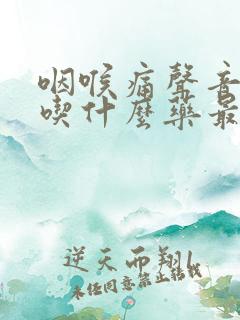 咽喉痛聲音
喫什麽藥最
逆天而翔l
未经同意禁止转载